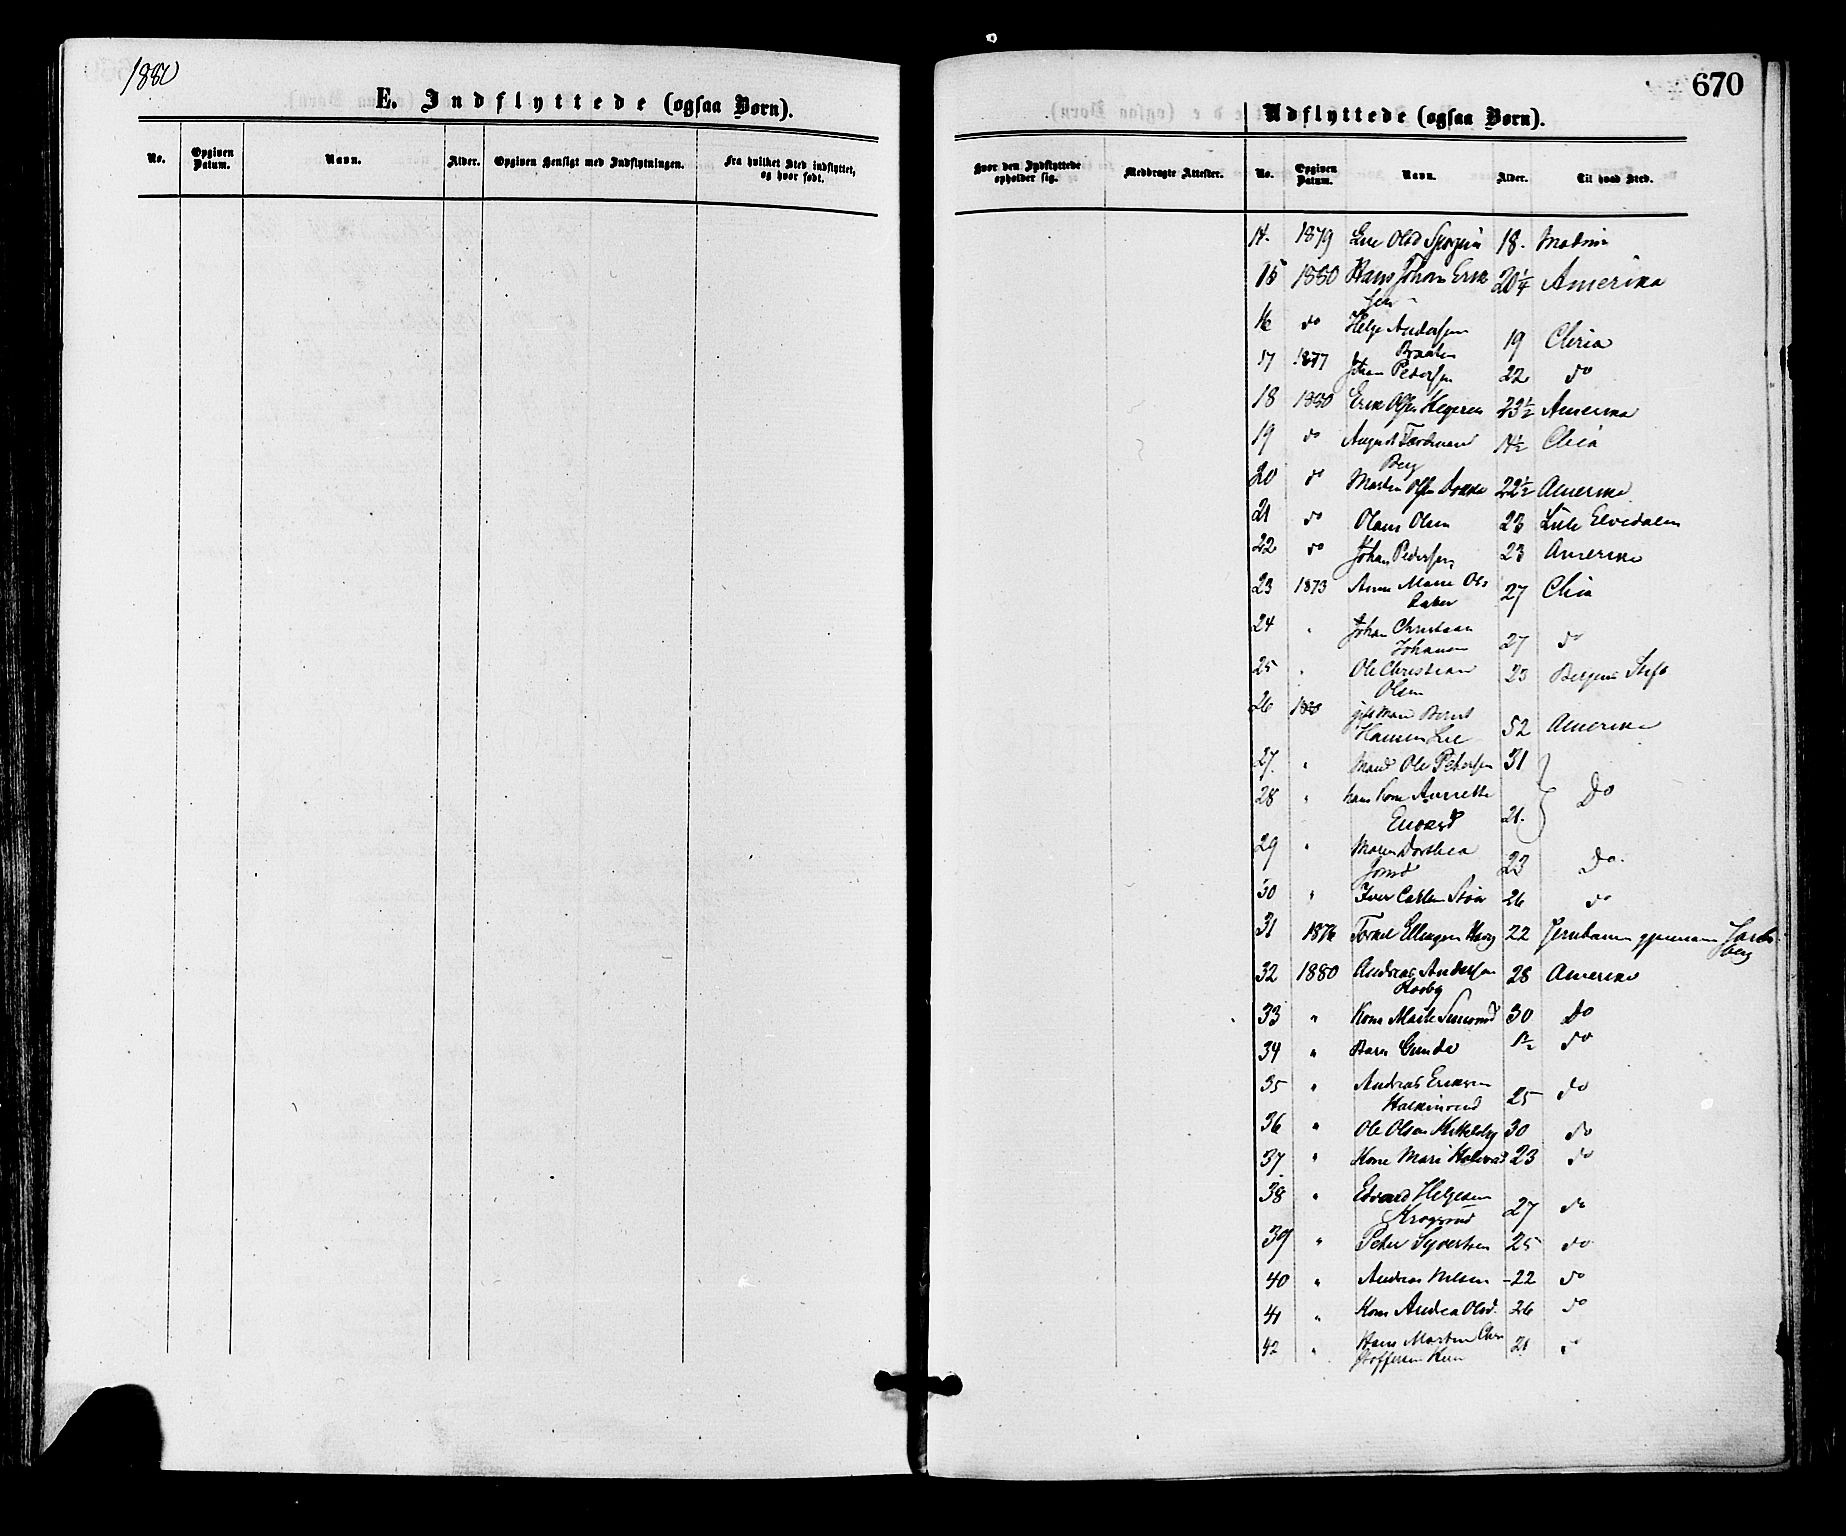 1880
E. Indflyttede (ogsaa Børn).
No. Opgiven Datum. Navn. Alder. Opgiven Hensigt med Indflytningen. Fra hvilket Sted indflyttet, og hvor født.
670
Udflyttede (ogsaa Børn).
Hvor den Indflyttede opholder sig. Medbragte Attester. No. Opgiven Datum. Navn. Alder. Til hvad Sted.
14. 1879 Olsd 18.
15 1880 Hans Johan Erik 20 1/4 Amerika
sen
16 do Helge Andersen
Braaten 19
17 1877 Johan Pedersen 22 do
18 1880 Erik Olsen 23 1/2 Amerika
19 do August Ferdinand 14 1/2
Berg
20 do Martin Olsen 22 1/2 Amerika
21 do Olaus Olsen 23 Lille Elvedalen
22 do Johan Pedersen 23 Amerika
23 1873 Anne Marie Ols 27
24 " Johan Christian
Johansen 27 do
25 " Ole Christian 23 Bergens Stift
Olsen
26 1880 gift Mand Bernt
Hansen Lie 52 Amerika
27. " Mand Ole Petersen 31
28 " hans Kone Annette Do
21.
29 " Maren Dorthea
23 Do.
30 " Iver Carlsen 26 do
31 1876 Torkel Ellingsen Haug 22 Jernbanen gjennem Jarls
berg
32 1880 Andreas Andersen 28 Amerika
33 " Kone Marte 30 Do
34 " Barn Gunda 1 1/2 do
35 " Andreas Eriksen
25 do
36 " Ole Olsen 30 do
37. " Kone Mari 23 do
38 " Edvard Helgesen
27 do
39 " Peter Syvertsen 25 do
40 " Andreas Nilsen 22 do
41 " Kone Andrea Olsd. 26 do
42 " Hans Martin Chri
stoffersen 21 do